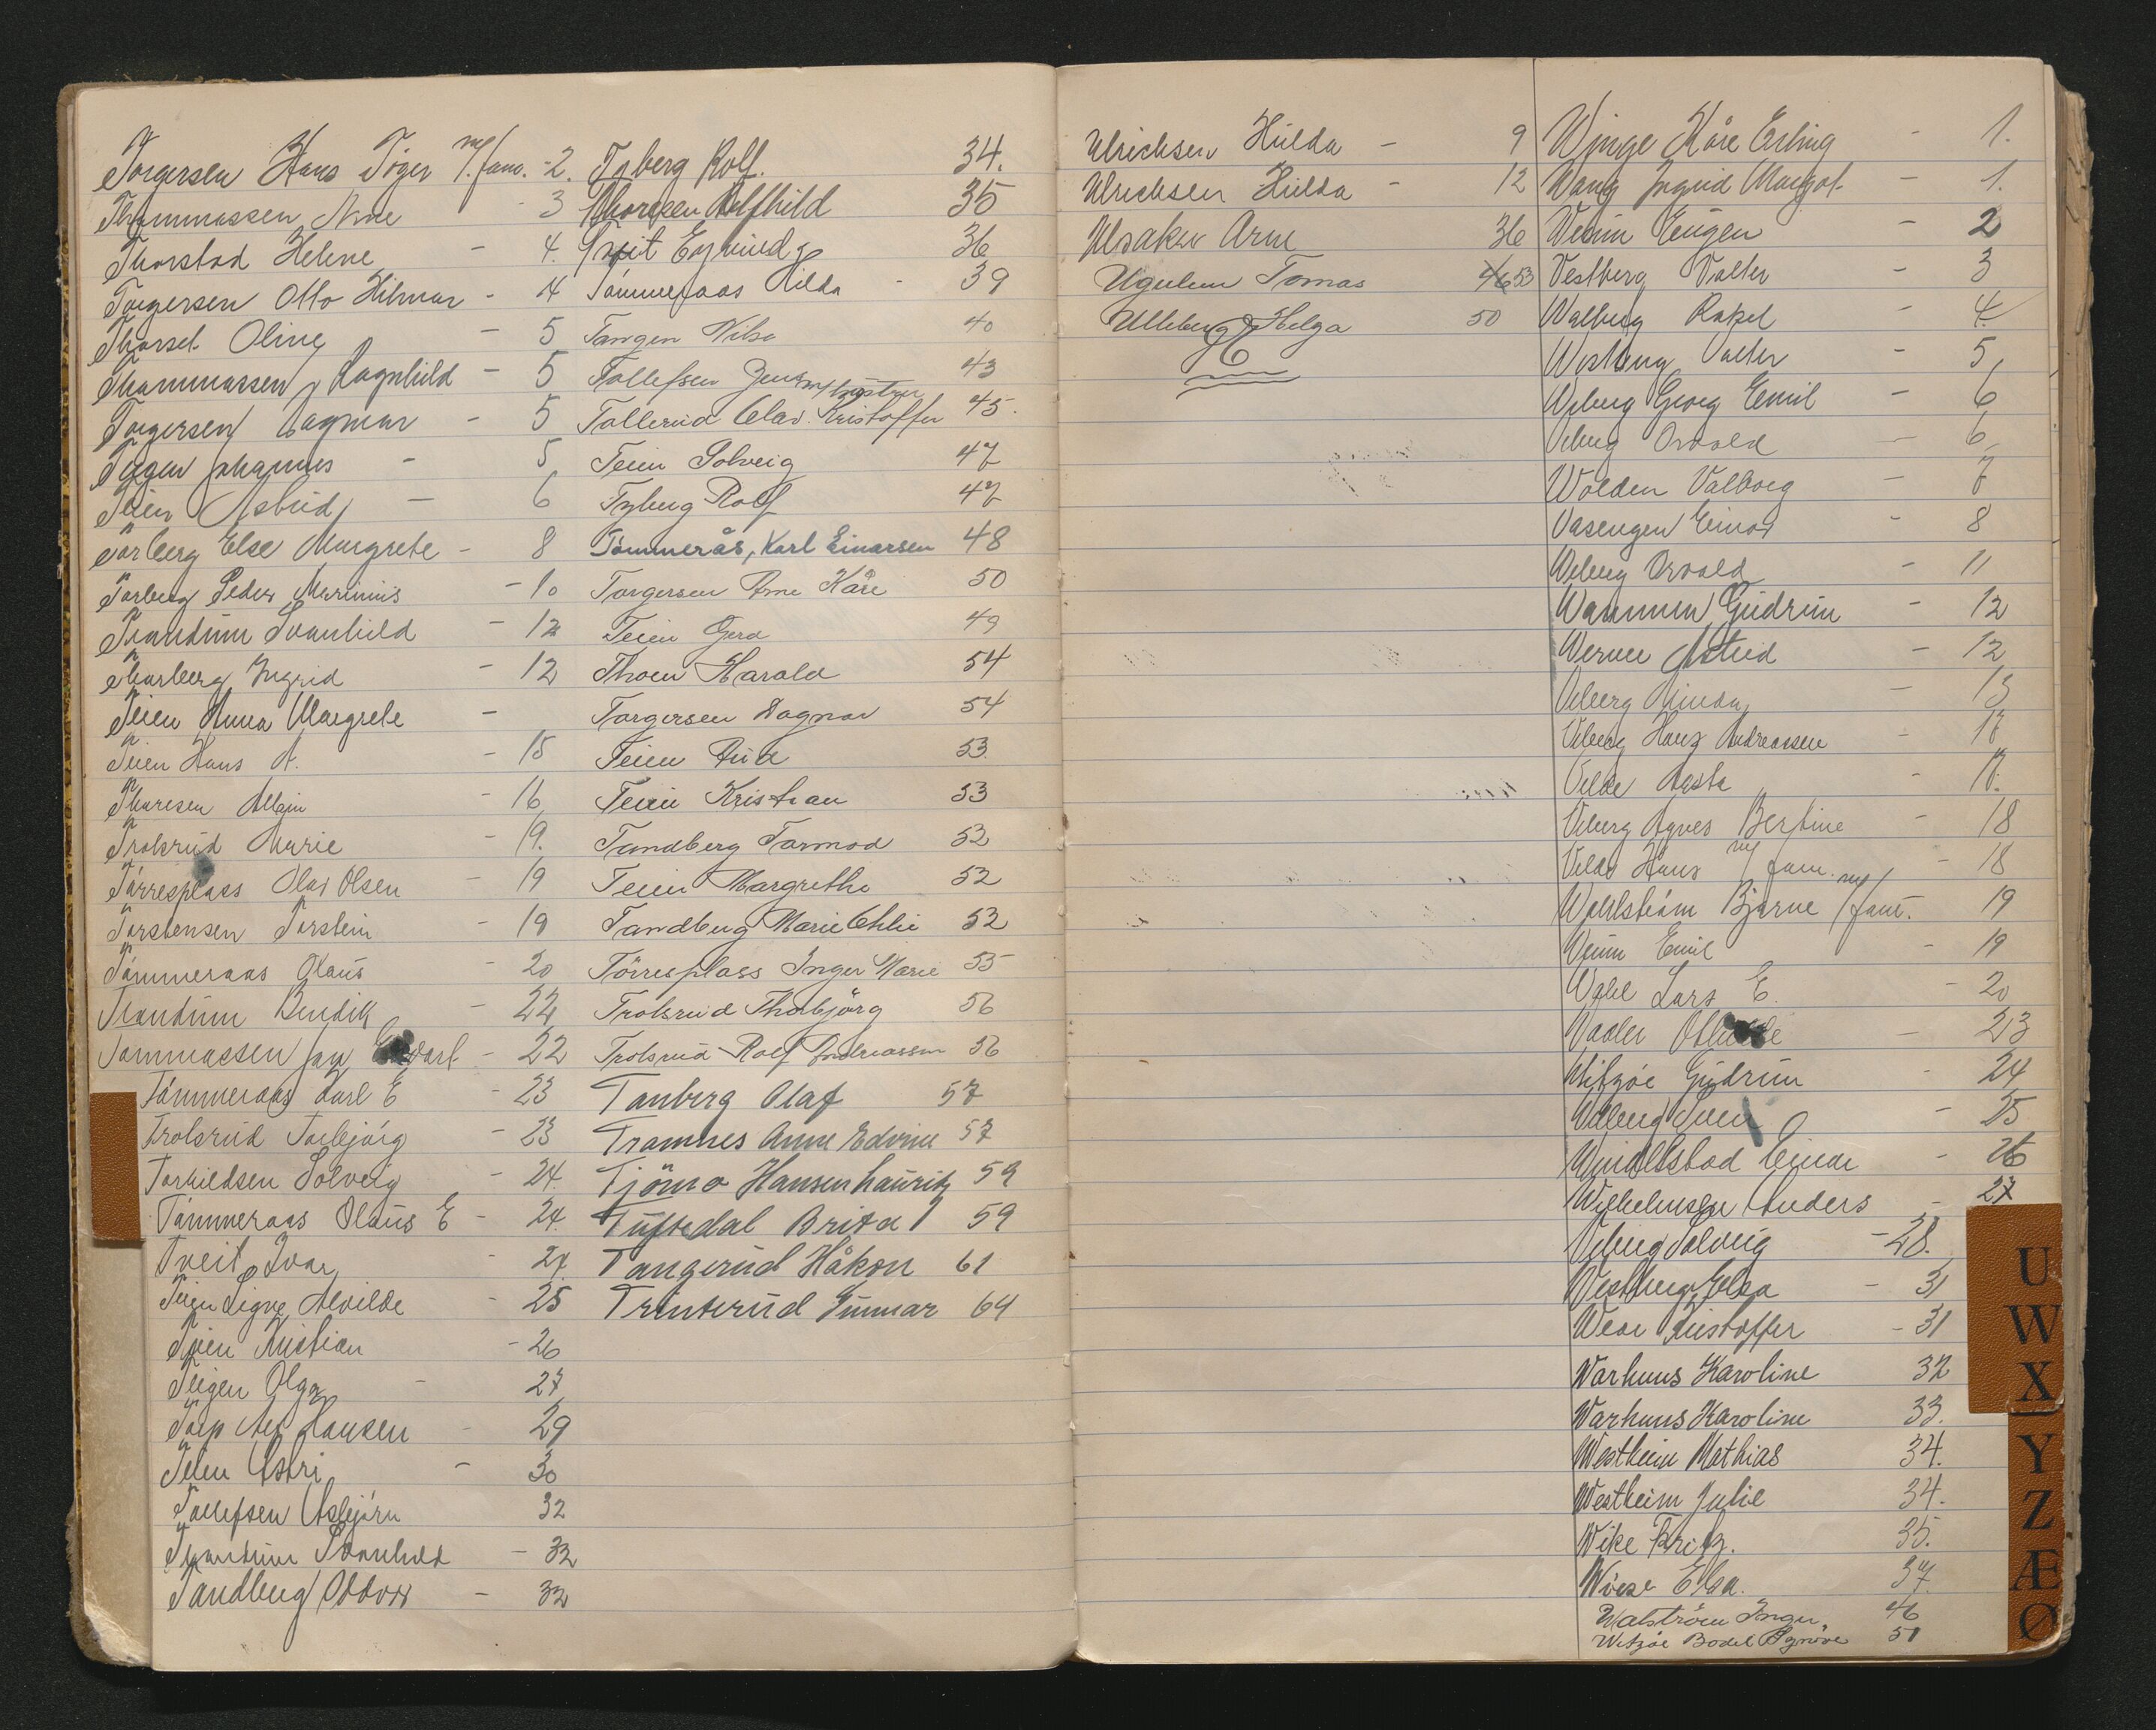 Torgersen Hans Töger m/fam. - 2.
Thommassen Arne - 3
Thorstad Helene - 4.
Torgersen Otto Hilmar - 4
Thorset Oline - 5
Thommassen Ragnhild - 5
Torgersen Dagmar - 5
Teigen Johannes - 5
Teien Astrid - 6
Torberg Else Margrete - 8
Torberg Peder Marinius - 10
Trandum Svanhild - 12
Thorberg Ingrid - 12
Teien Anna Margrete -
Teien Hans A. - 15
Thoresen - 16
Trolsrud Marie - 19.
Törresplass Olav Olsen - 19
Torstensen Torstein - 19
Tömmeraas Olaus - 20
Trandum Bendik - 22
Tommassen - 22
Tömmeraas Karl E - 23
Trolsrud Torbjörg - 23
Torkildsen Solveig - 24.
Tömmeraas Olaus E - 24.
Tveit Ivar - 24.
Teien Signe Alvilde - 25
Teien Kristian - 26
Teigen Olga - 27
Torp Alf Hansen - 29
Teien Astri - 30
Tollefsen Asbjörn 32
Trandum Svanhild - 32
Tandberg Oddvar - 32
Tyberg Rolf. 34.
Thoresen Alfhild 35
Tveit Eyvind 36
Tömmeraas Hilda - 39
Tangen Nils 40
Tollefsen Jens m/hustru 43
Tollerud Olav Kristoffer 45.
Teien Solveig 47
Tyberg Rolf 47
Tömmerås, Karl Einarsen 48
Torgersen Arne Kåre 50
Teien Gerd 49
Thoen Harald 54
Torgersen Dagmar 54
Teien 53
Teien Kristian 53
Tandberg Tormod 52
Teien Margrethe 52
Tandberg Marie 52
Törresplass Inger Marie 55
Trolsrud Thorbjörg 56
Trolsrud Rolf Andreassen 56
Tanberg Olaf 57
Tramnes Anne Edvine 57
Tjömo Hansen Lauritz 59
Tuftedal Brita 59
Tangerud Håkon 61
Trinterud Gunnar 64
Ulrichsen Hilda - 9
Ulrichsen Hilda - 12
Ulsaker Arne 36
Ugulen Tomas 46 53
Ulleberg Helga 50
Winge Kåre Erling - 1.
Wang Ingrid Margot - 1.
Weum Eugen - 2
Vestberg Valter - 3
Walberg Rakel - 4
Westberg Valter - 5
Viberg Georg Emil - 6
Viberg Osvald - 6
Wolden Valborg - 7
Vasengen Einar - 8
Viberg Osvald - 11
Wammen Gudrun - 12
Werner Astrid - 12
Viberg - 13
Viberg Hans Andreassen - 17
Velde Aasta - 17.
Viberg Agnes Bertine - 18
Velde Hans m/fam. - 18
Wahlström Bjarne m/fam. 19
Weum Emil - 19
Wahl Lars E. - 20
Vaaler - 23
Witzöe Gudrun - 24
- 25
Einar - 26
Wilhelmsen Anders - 27
Viberg Solveig - 28.
Westberg Elsa - 31
Kristoffer - 31
Warhuus Karoline 32
Warhuus Karoline 33.
Westheim Mathias 34.
Westheim Julie 34.
Wike Fritz. 35.
Wiese Elsa. 37.
Walström Inger 46
Witzöe Bodil 51
U
W
X
Y
Z
Æ
Ø